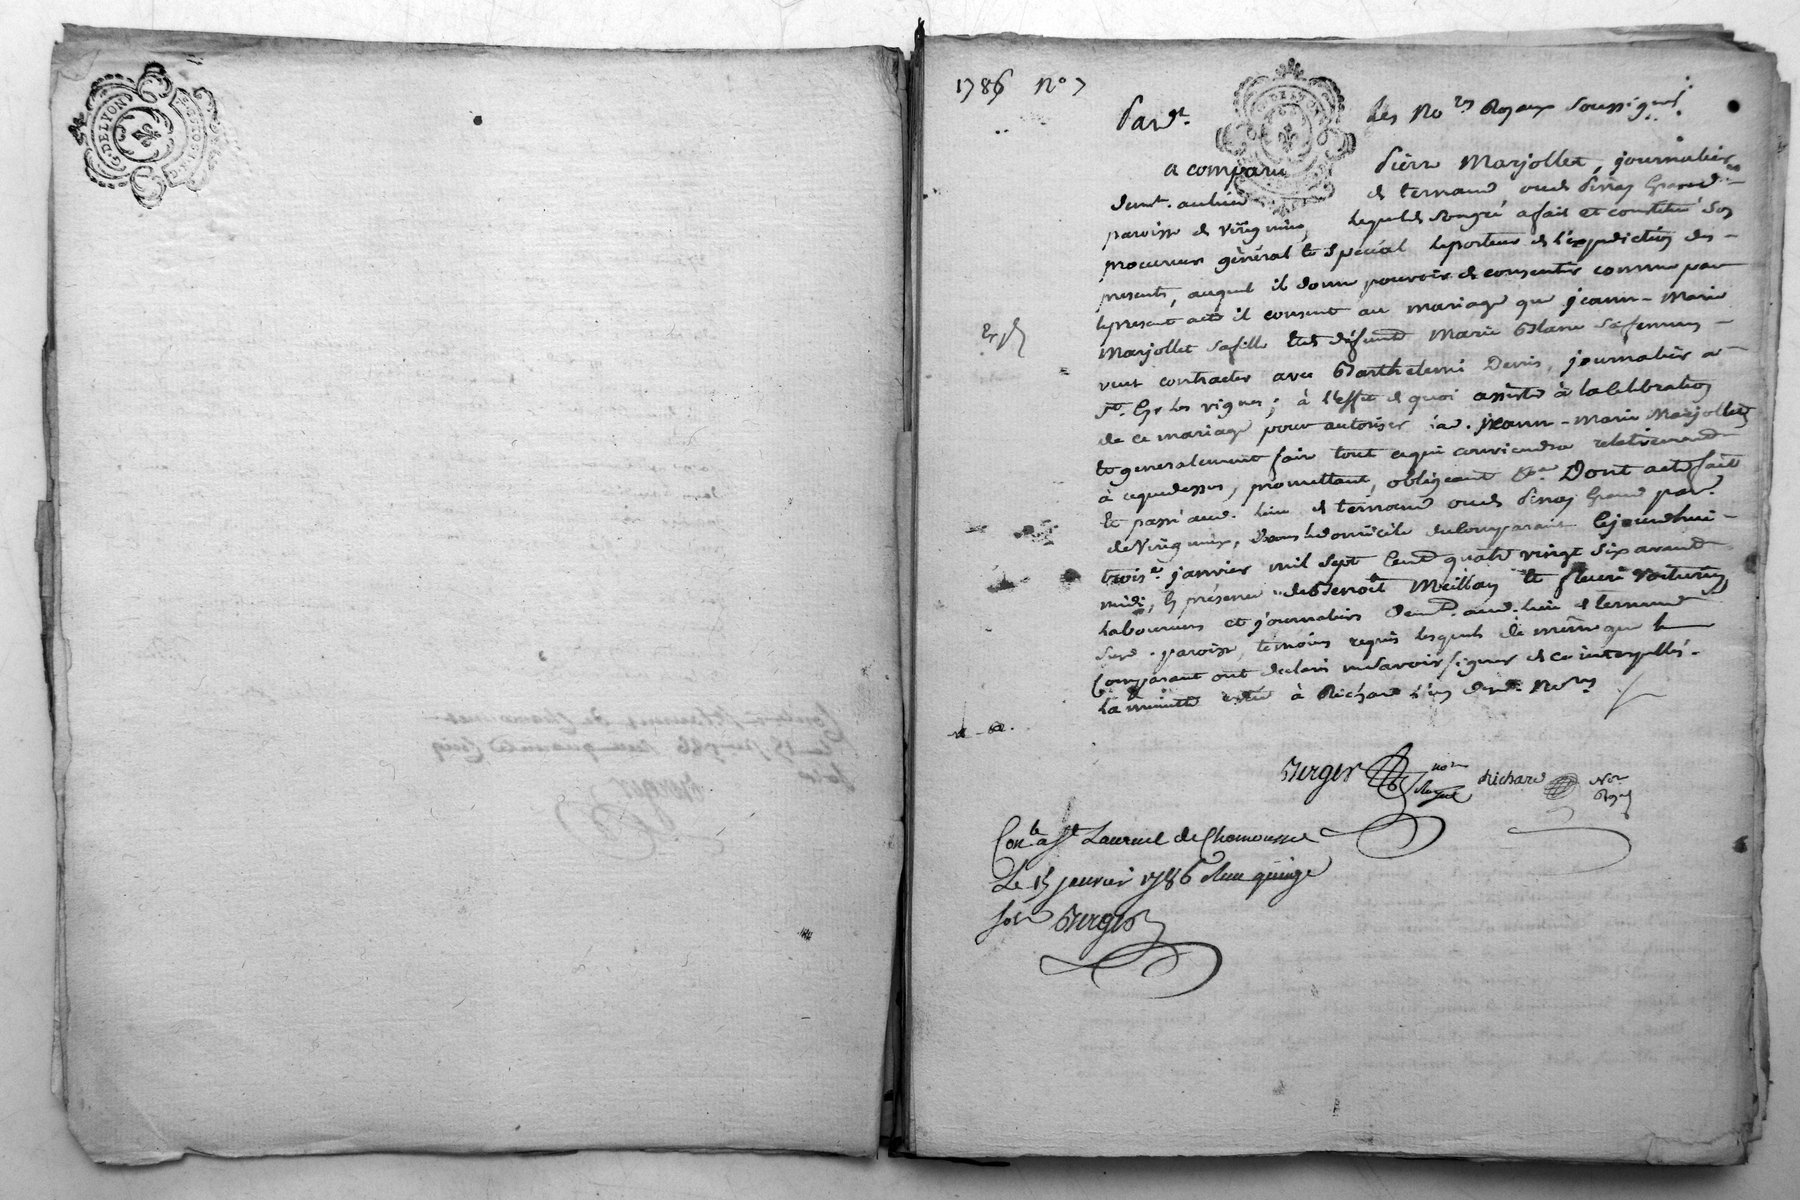 G. DE LYON
1786 N° 7
Pard.t les No.res Royaux soussignés
G. DE LYON
a comparu Pierre Marjollet, journalier
demt. au lieu de ternand ou de Pinay Grand
paroisse de Viregneux, lequel de son gré a fait et constitué son
procureur général et spécial le porteur de l'expedition des
presentes, auquel il donne pouvoir de consentir comme par
le present acte il consent au mariage que jeanne-Marie
Marjollet sa fille et de défunte Marie Blanc sa femme
Exp
veut contracter avec Barthelemi Denis, journalier a
St. Cyr les vignes; à l'effet de quoi assister à la Celebration
de ce mariage pour autoriser lad. jeanne-Marie Marjollet
et generalement faire tout ce qui conviendra relativement
à ce que dessus, promettant, obligeant &a Dont acte fait
et passé aud. lieu de ternand ou de Pinay Grand par.
de Viregneux, dans le domicile du Comparant Cejourdhui
trois.e janvier mil sept Cent quatre vingt six avant
midi, En présence de Benoit Meillan et fleuri Voiturin
laboureurs et journaliers demt. aud. lieu de ternand
susd. paroisse, temoins requis lesquels de même que le
Comparant ont declaré ne savoir signer de ce interpellés.
la minute restée à Richard l'un desd. No.res
Berger no.re Royal Richard No.re Royal
Con.lé a St Laurent de Chamousset
Le 15 janvier 1786 Reçu quinze
sols Berger